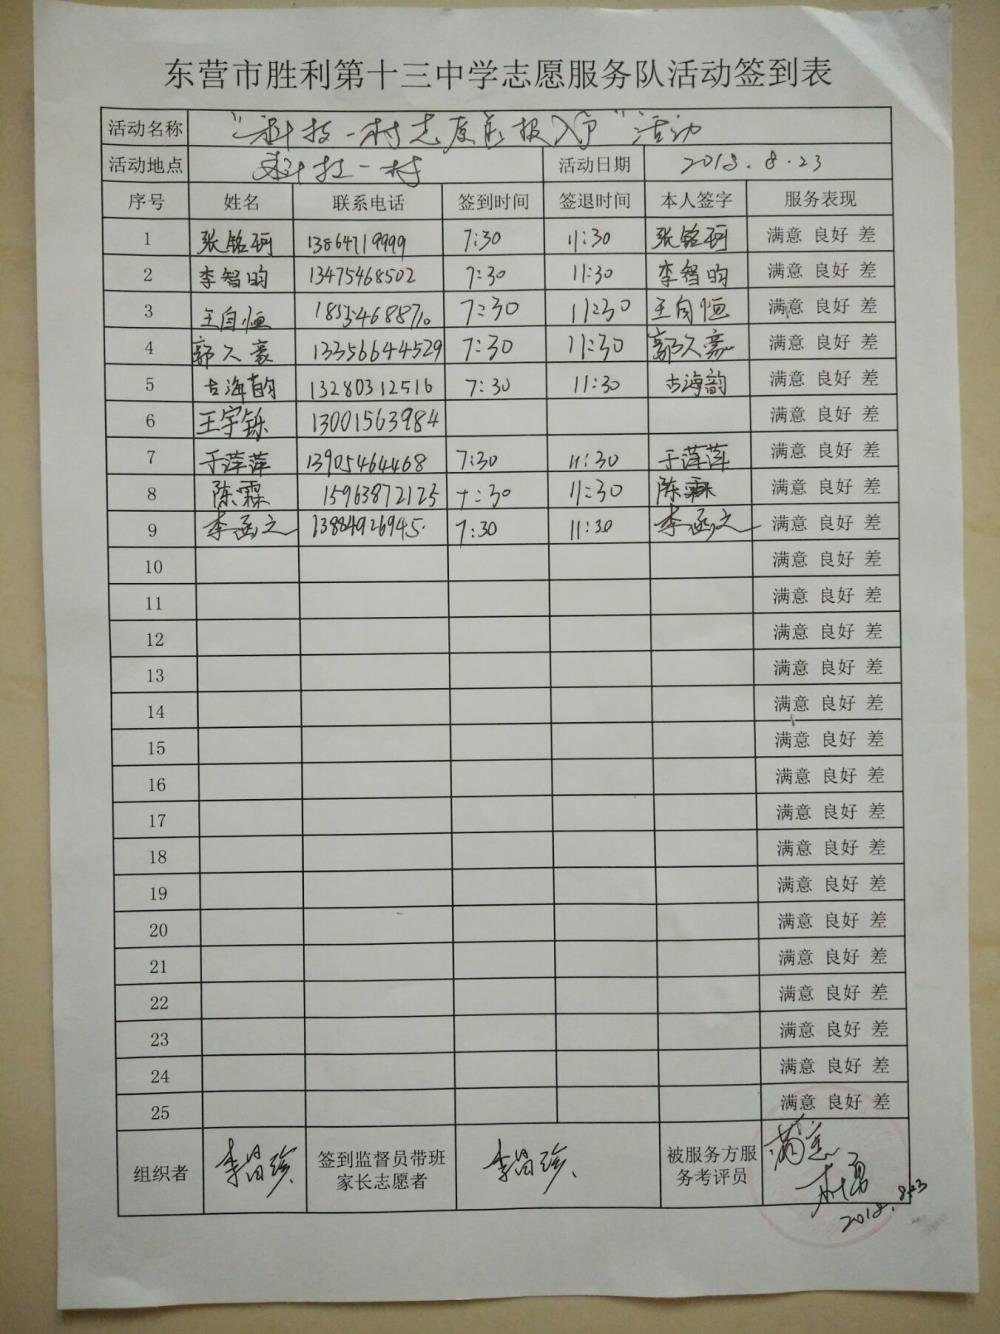 东营市胜利第十三中学志愿服务队活动签到表
活动名称 "科技一村志愿 报 " 活动
活动地点 科技一村 活动日期 2018.8.23
序号 姓名 联系电话 签到时间 签退时间 本人签字 服务表现
1 张铭珂 13864719999 7:30 11:30 张铭珂 满意 良好 差
2 李智昀 13475468502 7:30 11:30 李智昀 满意 良好 差
3 王自恒 18554688710 7:30 11:30 王自恒 满意 良好 差
4 郭久豪 13356644529 7:30 11:30 郭久豪 满意 良好 差
5 古海韵 13280312516 7:30 11:30 古海韵 满意 良好 差
6 王宇铄 13001563984 满意 良好 差
7 于萍萍 13905464468 7:30 11:30 于萍萍 满意 良好 差
8 陈霖 15963872125 7:30 11:30 陈霖 满意 良好 差
9 李函之 13884926945 7:30 11:30 李函之 满意 良好 差
10 满意 良好 差
11 满意 良好 差
12 满意 良好 差
13 满意 良好 差
14 满意 良好 差
15 满意 良好 差
16 满意 良好 差
17 满意 良好 差
18 满意 良好 差
19 满意 良好 差
20 满意 良好 差
21 满意 良好 差
22 满意 良好 差
23 满意 良好 差
24 满意 良好 差
25 满意 良好 差
组织者 李昌珍 签到监督员带班
家长志愿者 李昌珍 被服务方服
务考评员 满意
杜勇
2018.8.23